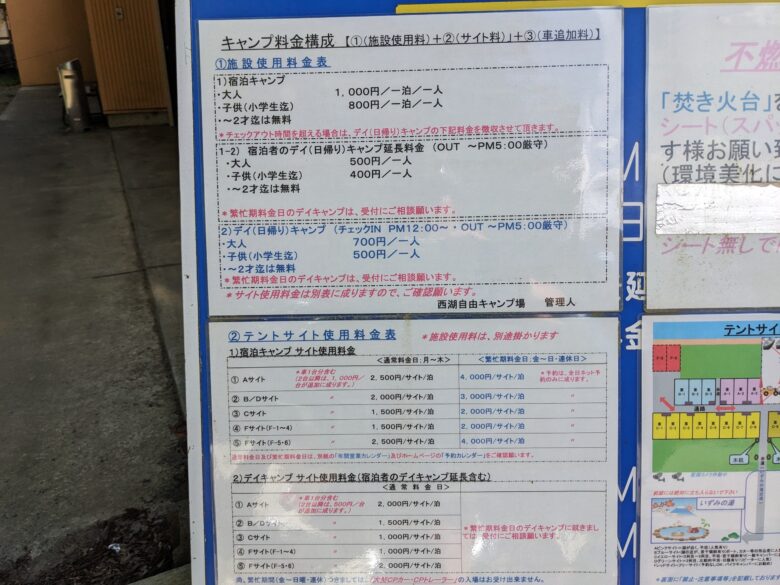 キャンプ料金構成 【①(施設使用料)+②(サイト料)」+③(車追加料)】
①施設使用料金表
1)宿泊キャンプ
・大人 1,000円/一泊/一人
・子供(小学生迄) 800円/一泊/一人
・~2才迄は無料
*チェックアウト時間を超える場合は、デイ(日帰り)キャンプの下記料金を徴収させて頂きます。
1-2) 宿泊者のデイ(日帰り)キャンプ延長料金 (OUT ~PM5:00厳守)
・大人 500円/一人
・子供(小学生迄) 400円/一人
・~2才迄は無料
*繁忙期料金日のデイキャンプは、受付にご相談願います。
2)デイ(日帰り)キャンプ (チェックIN PM12:00~・OUT ~PM5:00厳守)
・大人 700円/一人
・子供(小学生迄) 500円/一人
・~2才迄は無料
*繁忙期料金日のデイキャンプは、受付にご相談願います。
*サイト使用料金は別表に成りますので、ご確認願います。
西湖自由キャンプ場 管理人
②テントサイト使用料金表 *施設使用料は、別途掛かります
1)宿泊キャンプ サイト使用料金
<通常料金日:月~木> <繁忙期料金日:金~日・連休日>
① Aサイト *車1台分含む(2台以降は、1,000円/台が追加に成ります。) 2,500円/サイト/泊 4,000円/サイト/泊 *予約は、全日ネット予約のみに成ります。
② B/Dサイト 〃 2,000円/サイト/泊 3,000円/サイト/泊 〃
③ Cサイト 〃 1,500円/サイト/泊 2,000円/サイト/泊 〃
④ Fサイト(F-1~4) 〃 1,500円/サイト/泊 2,000円/サイト/泊 〃
⑤ Fサイト(F-5・6) 〃 2,500円/サイト/泊 4,000円/サイト/泊 〃
通常料金日及び繁忙期料金日は、別紙の「年間営業カレンダー」及びホームページの「予約カレンダー」をご確認願います。
2)デイキャンプ サイト使用料金(宿泊者のデイキャンプ延長含む)
<通常料金日>
① Aサイト *車1台分含む(2台以降は、500円/台が追加に成ります。) 2,000円/サイト/泊
② B/Dサイト 〃 1,500円/サイト/泊
③ Cサイト 〃 1,000円/サイト/泊
④ Fサイト(F-1~4) 〃 1,000円/サイト/泊
⑤ Fサイト(F-5・6) 〃 2,000円/サイト/泊
*繁忙期料金日のデイキャンプに就きましては、受付にご相談願います。
尚、繁忙期間(金~日曜・連休)つきましては、「大型CPカー・CPトレーラー」の入場はお受け出来ません。
不燃
「焚き火台」
シート(スパ
す様お願い致
(環境美化に
シート無しで
M
日
延
金
テントサイ
通路
いずみの湯